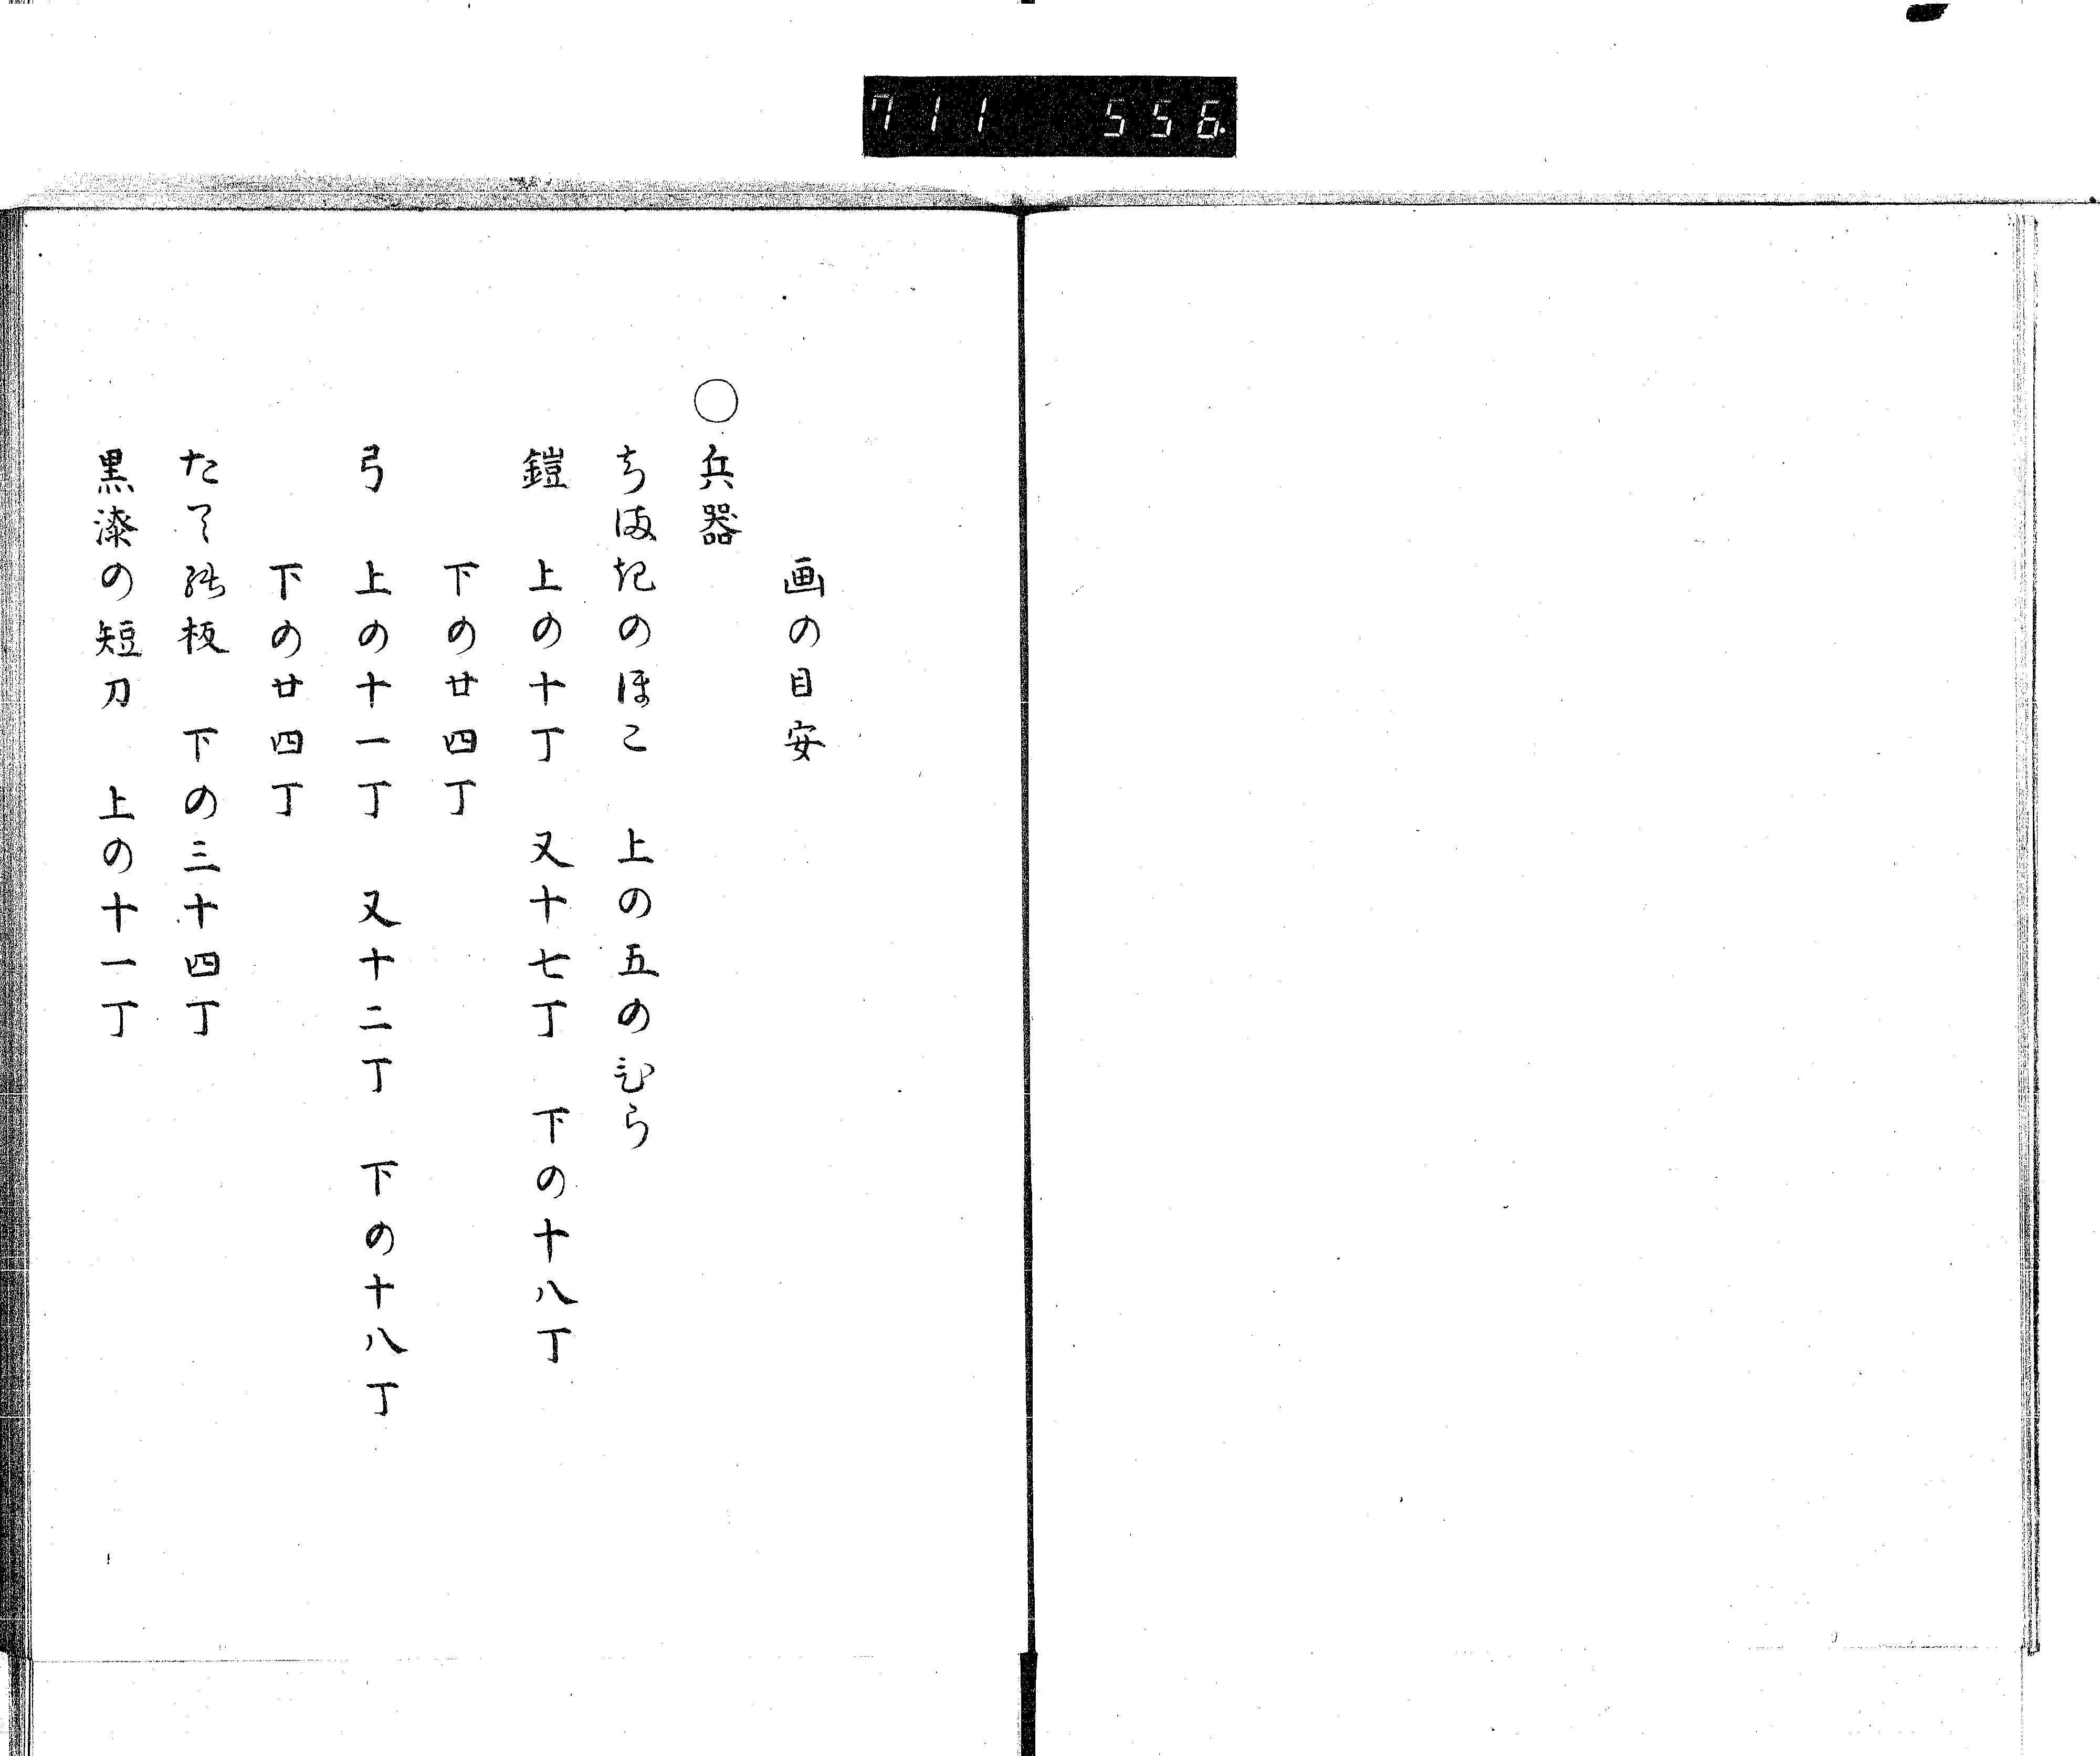 711 556
画の目安
○兵器
ちまきのほこ 上の五のひら
鎧 上の十丁 又十七丁 下の十八丁
下の廿四丁
弓 上の十一丁 又十二丁 下の十八丁
下の廿四丁
たての板 下の三十四丁
黒漆の短刀 上の十一丁